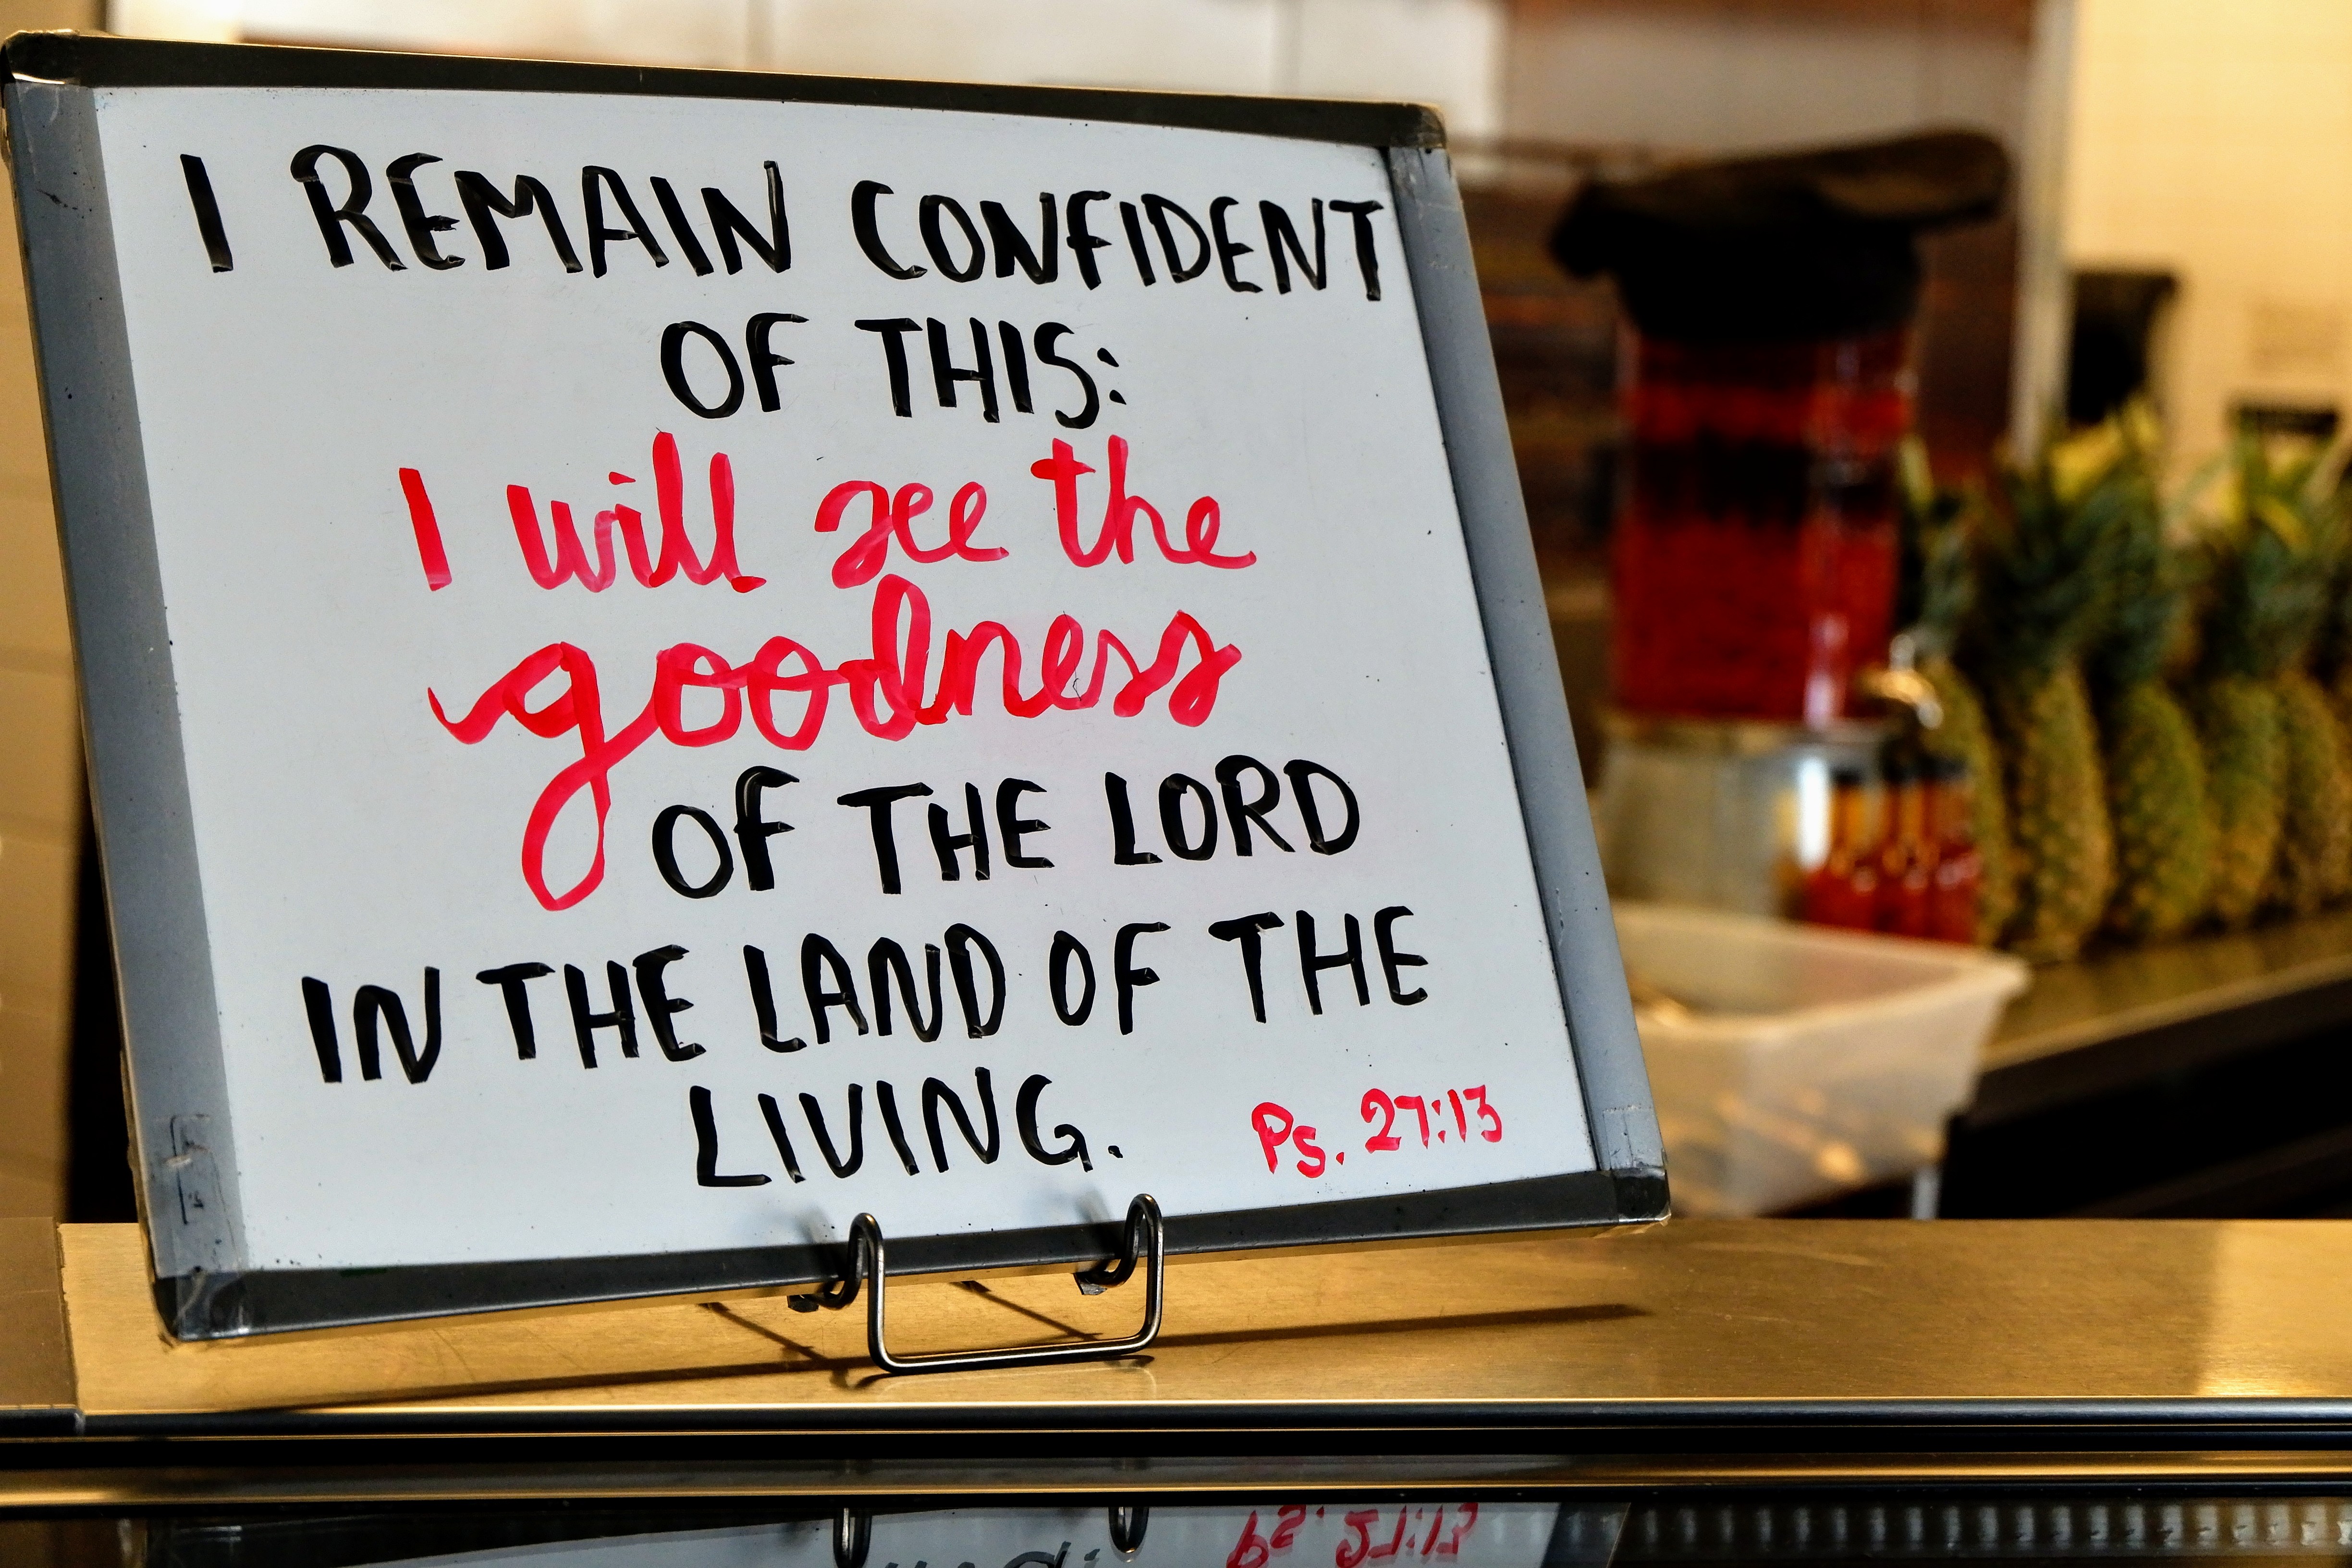 I REMAIN CONFIDENT
OF THIS:
I will see the
goodness
OF THE LORD
IN THE LAND OF THE
LIVING.
Ps. 27:13